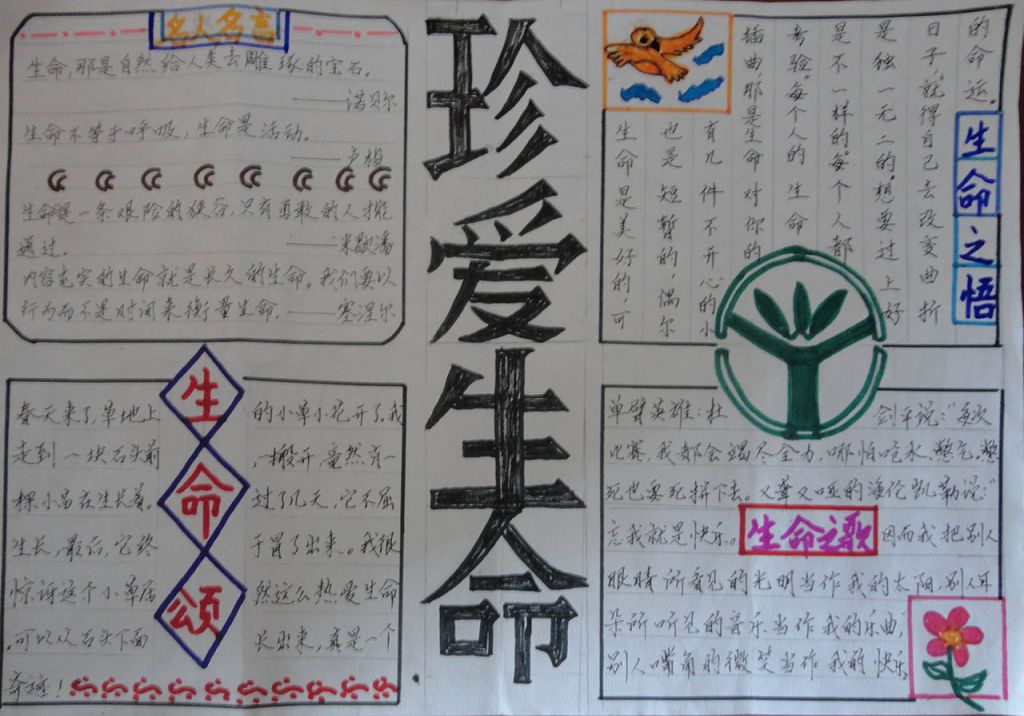 名人名言
生命,那是自然给人类去雕琢的宝石。
——诺贝尔
生命不等于呼吸,生命是活动。
——卢梭
生命是一条艰险的峡谷,只有勇敢的人才能
通过。 ——米歇潘
内容充实的生命就是长久的生命。我们要以
行为而不是时间来衡量生命。——塞涅尔
珍爱生命
生命之悟
生命是美好的,可
也是短暂的,偶尔
有几件不开心的小
插曲,那是生命对你的
考验。每个人的生命
是不一样的。每个人都
是独一无二的。想要过上好
日子,就得自己去改变曲折
的命运。
生命颂
春天来了,草地上的小草小花开了,我
走到一块石头前,一搬开,竟然有一
棵小苗在生长着。过了几天,它不屈
生长,最后,它终于冒了出来。我很
惊讶这个小草居然这么热爱生命
,可以从石头下面长出来,真是一个
奇迹!
生命之歌
单臂英雄:杜剑平说:“每次
比赛,我都会竭尽全力,哪怕呛水,憋气,憋
死也要死拼下去。又聋又哑的海伦凯勒说:“
忘我就是快乐。因而我把别人
眼睛所看见的光明当作我的太阳,别人耳
朵所听见的音乐当作我的乐曲,
别人嘴角的微笑当作我的快乐。